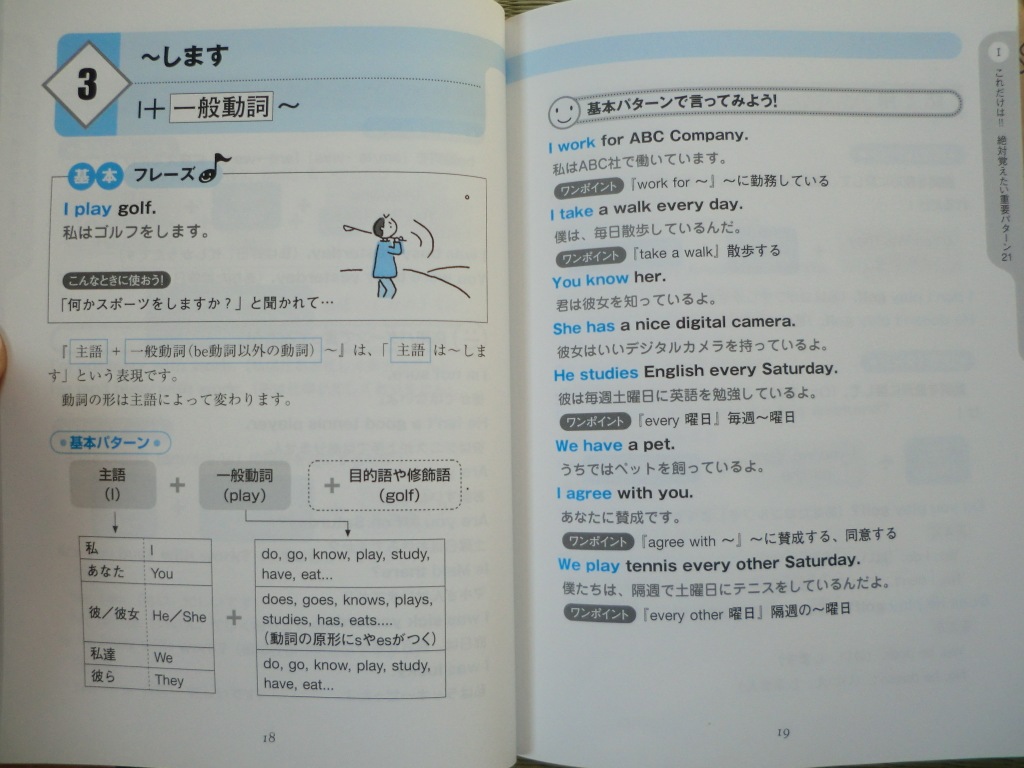 3
～します
I＋ 一般動詞 ～
基本 フレーズ
I play golf.
私はゴルフをします。
こんなときに使おう!
「何かスポーツをしますか？」と聞かれて…
『 主語 + 一般動詞(be動詞以外の動詞) ～』は、「 主語 は～しま
す」という表現です。
動詞の形は主語によって変わります。
基本パターン
主語 + 一般動詞 + 目的語や修飾語
(I) (play) (golf) .
私 I
あなた You
彼／彼女 He／She
私達 We
彼ら They
+
do, go, know, play, study,
have, eat...
does, goes, knows, plays,
studies, has, eats....
(動詞の原形にsやesがつく)
do, go, know, play, study,
have, eat...
18
I これだけは!! 絶対覚えたい重要パターン21
基本パターンで言ってみよう!
I work for ABC Company.
私はABC社で働いています。
ワンポイント 『work for ～』～に勤務している
I take a walk every day.
僕は、毎日散歩しているんだ。
ワンポイント 『take a walk』散歩する
You know her.
君は彼女を知っているよ。
She has a nice digital camera.
彼女はいいデジタルカメラを持っているよ。
He studies English every Saturday.
彼は毎週土曜日に英語を勉強しているよ。
ワンポイント 『every 曜日』毎週～曜日
We have a pet.
うちではペットを飼っているよ。
I agree with you.
あなたに賛成です。
ワンポイント 『agree with ～』～に賛成する、同意する
We play tennis every other Saturday.
僕たちは、隔週で土曜日にテニスをしているんだよ。
ワンポイント 『every other 曜日』隔週の～曜日
19